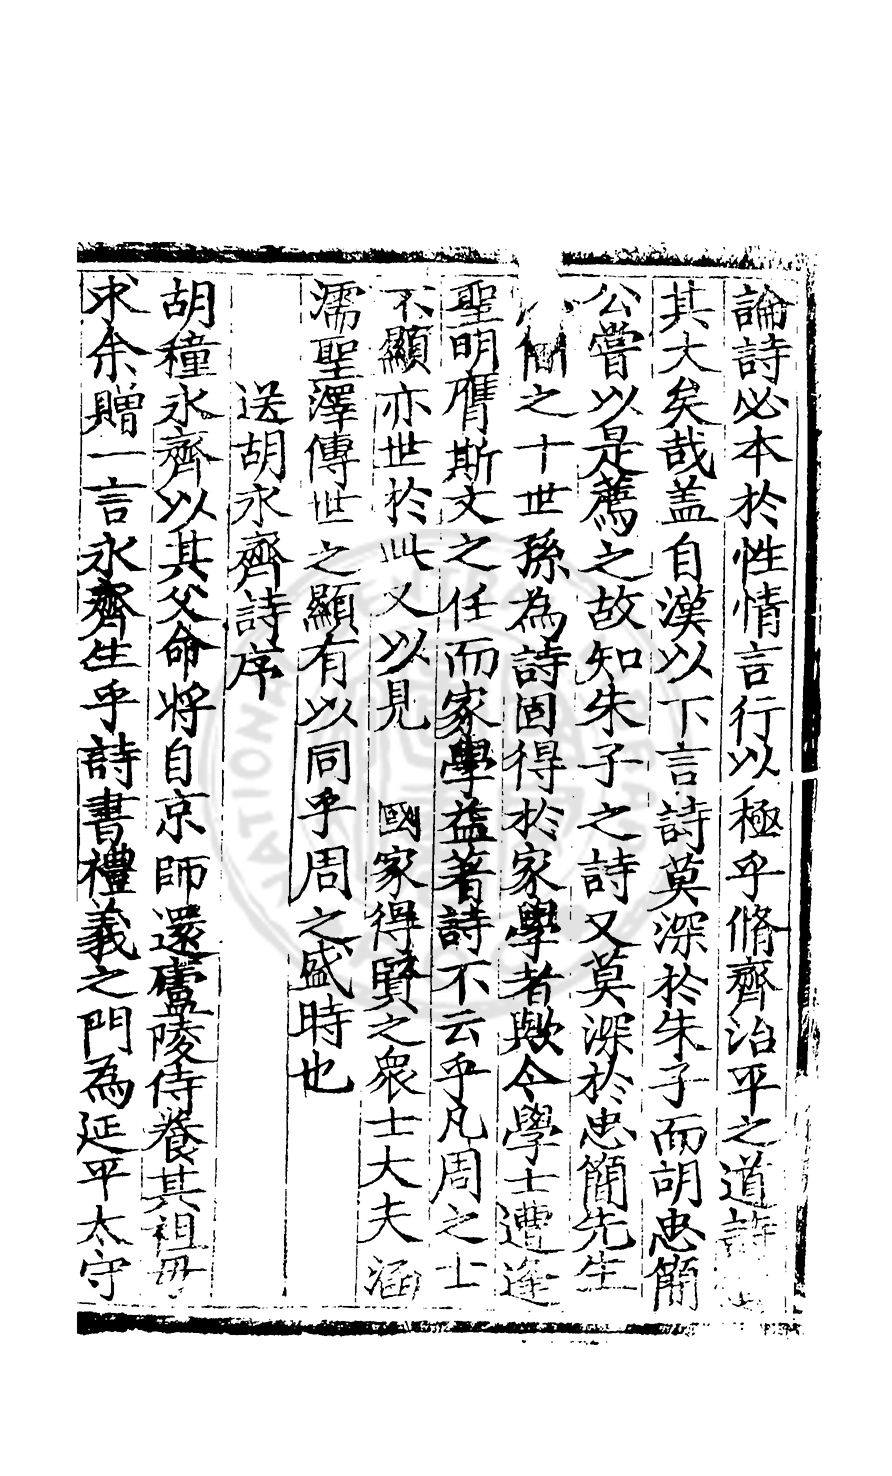 論詩必本於性情言行以極乎脩齊治平之道詩
其大矣哉盖自漢以下言詩莫深於朱子而胡忠簡
公嘗以是薦之故知朱子之詩又莫深於忠簡先生
簡之十世孫為詩固得於家學者歟今學士遭逢
聖明膺斯文之任而家學益著詩不云乎凡周之士
不顯亦世於此又以見 國家得賢之衆士大夫涵
濡聖澤傳世之顯有以同乎周之盛時也
送胡永齊詩序
胡穜永齊以其父命将自京師還廬陵侍養其祖毋
求余贈一言永齊生乎詩書禮義之門為延平太守